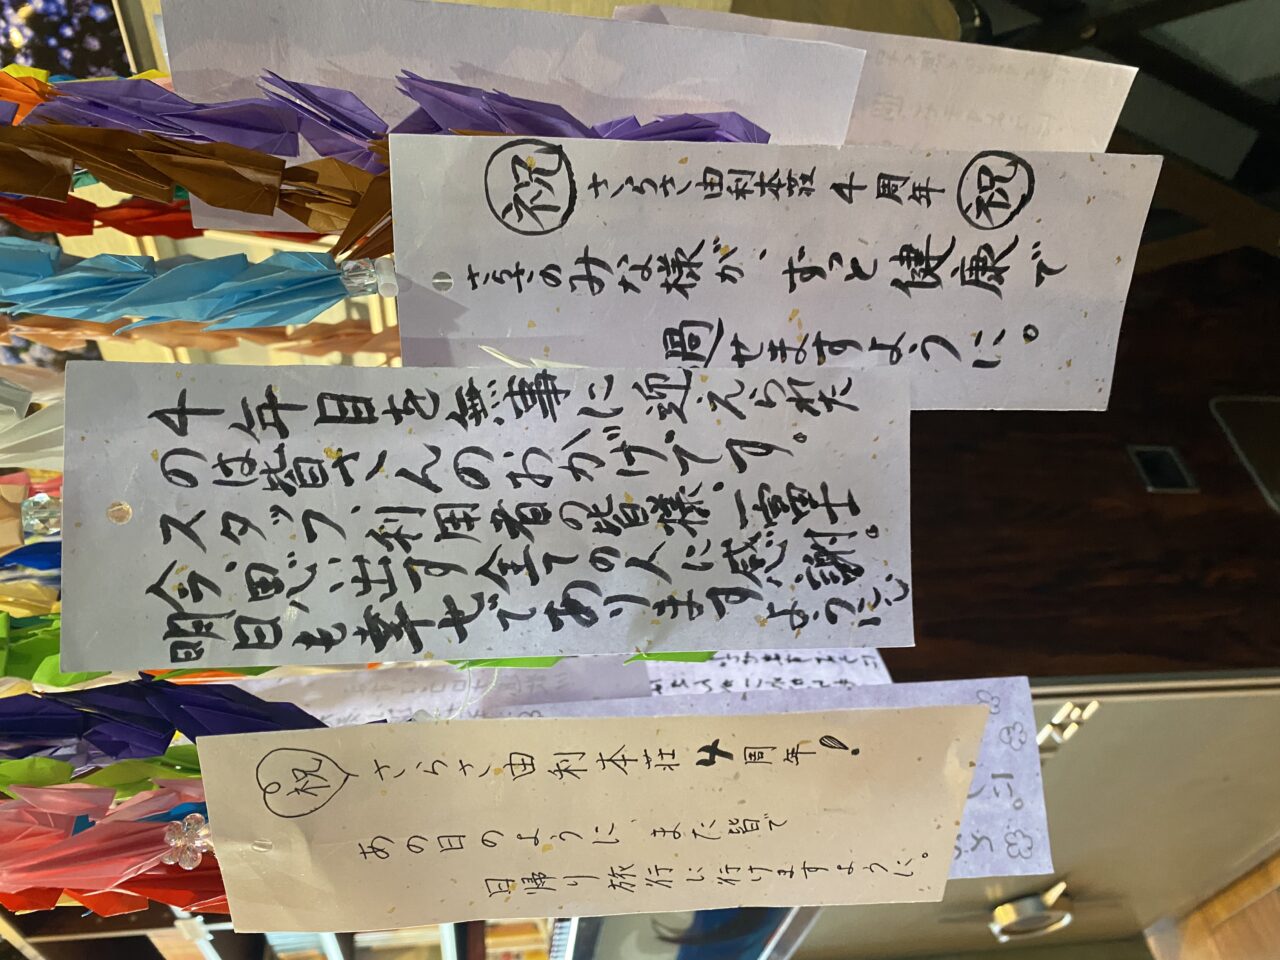 祝 さらさ由利本荘4周年 祝
さらさのみな様が、ずっと健康で
過せますように。
4年目を無事に迎えられた
のは皆さんのおかげです。
スタッフ、利用者の皆様、一冨士
今、思い出す全ての人に感謝。
明日も幸せでありますように
祝 さらさ由利本荘4周年!
あの日のように、また皆で
日帰り旅行に行けますように。